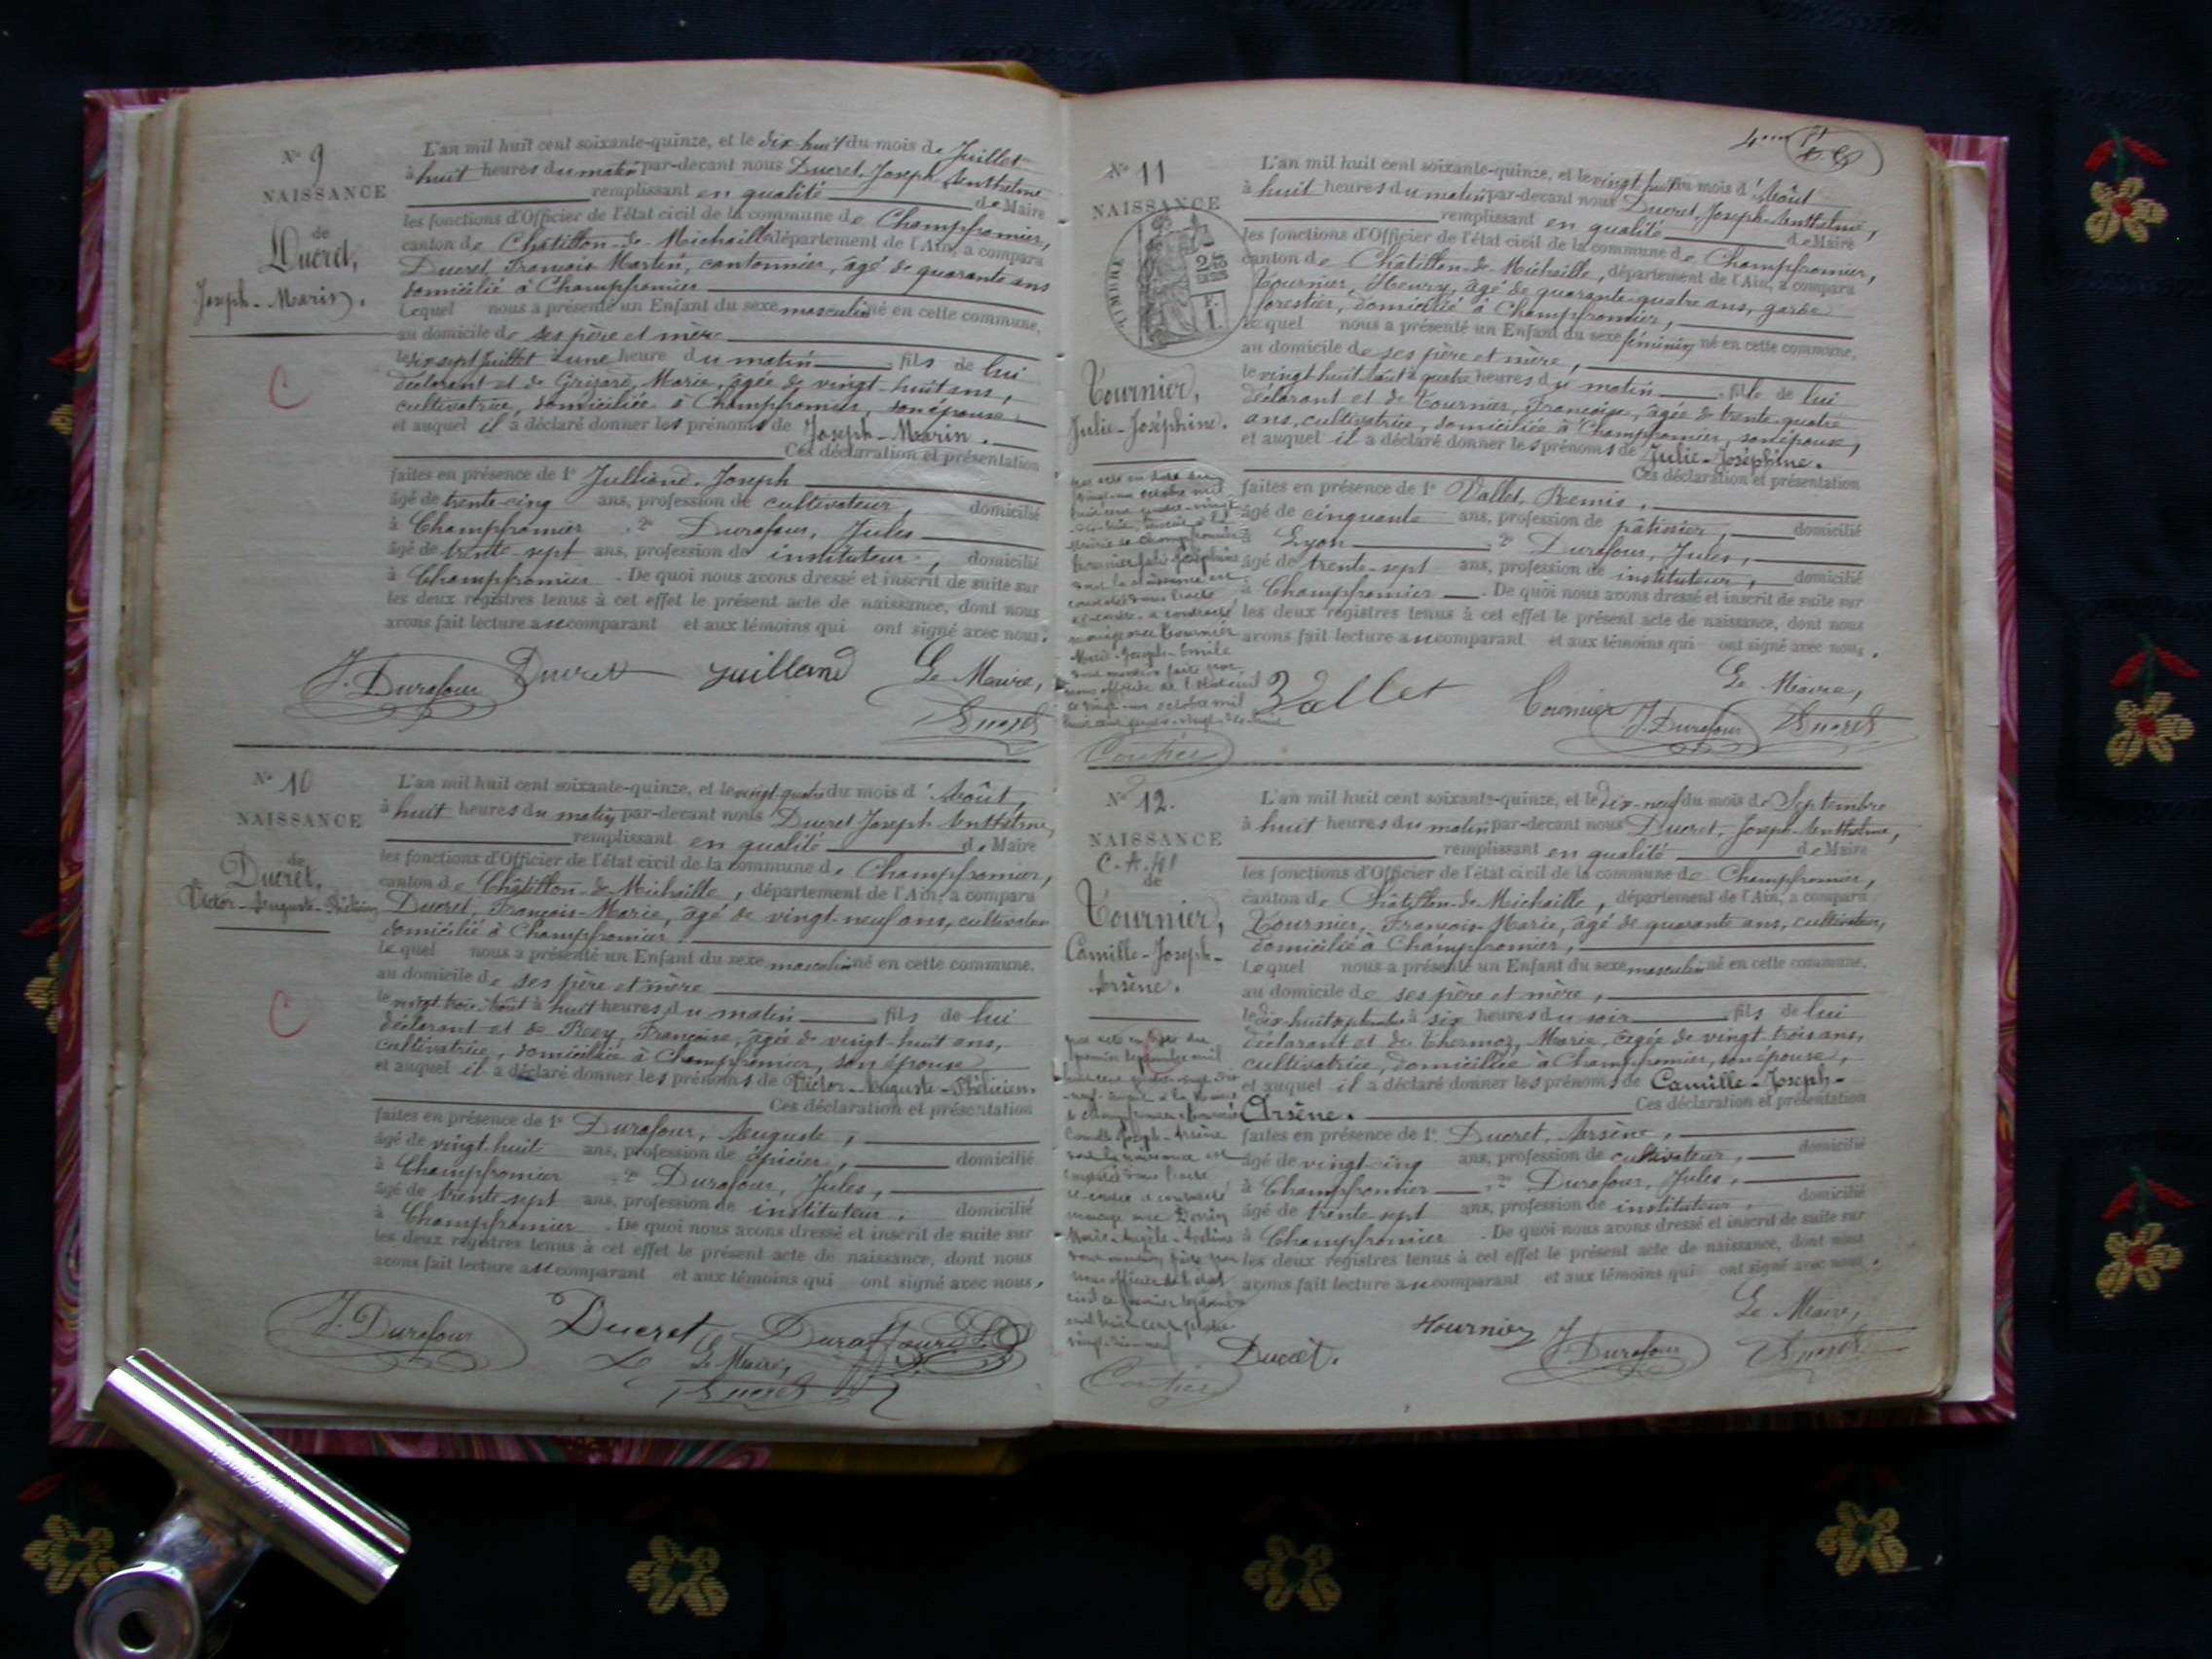 N° 9
NAISSANCE
de
Ducret,
Joseph-Marin.
C
L'an mil huit cent soixante-quinze, et le dix-huit du mois de Juillet
à huit heures du matin par-devant nous Ducret, Joseph Anthelme
remplissant en qualité de Maire
les fonctions d'Officier de l'état civil de la commune de Champfromier,
canton de Châtillon-de-Michaille département de l'Ain, a comparu
Ducret, François Martin, cantonnier, âgé de quarante ans
domicilié à Champfromier
Lequel nous a présenté un Enfant du sexe masculin né en cette commune,
au domicile de ses père et mère
le dix sept Juillet à une heure du matin fils de lui
déclarant et de Grisard, Marie, âgée de vingt-huit ans,
cultivatrice, domiciliée à Champfromier, son épouse,
et auquel il a déclaré donner les prénoms de Joseph-Marin.
Ces déclaration et présentation
faites en présence de 1° Julliand, Joseph
âgé de trente-cinq ans, profession de cultivateur, domicilié
à Champfromier, 2° Durafour, Jules
âgé de trente sept ans, profession de instituteur, domicilié
à Champfromier. De quoi nous avons dressé et inscrit de suite sur
les deux registres tenus à cet effet le présent acte de naissance, dont nous
avons fait lecture au comparant et aux témoins qui ont signé avec nous.
J. Durafour Ducret Juilland Le Maire,
Ducret
N° 10
NAISSANCE
de
Ducret,
Victor-Auguste-Félicien
C
L'an mil huit cent soixante-quinze, et le vingt quatre du mois d'Août,
à huit heures du matin par-devant nous Ducret Joseph Anthelme,
remplissant en qualité de Maire
les fonctions d'Officier de l'état civil de la commune de Champfromier,
canton de Châtillon-de-Michaille, département de l'Ain, a comparu
Ducret, François-Marie, âgé de vingt-neuf ans, cultivateur
domicilié à Champfromier
Lequel nous a présenté un Enfant du sexe masculin né en cette commune,
au domicile de ses père et mère
le vingt trois Août à huit heures du matin fils de lui
déclarant et de Rey, Françoise, âgée de vingt-huit ans,
cultivatrice, domiciliée à Champfromier, son épouse
et auquel il a déclaré donner les prénoms de Victor-Auguste-Félicien.
Ces déclaration et présentation
faites en présence de 1° Durafour, Auguste,
âgé de vingt-huit ans, profession de épicier, domicilié
à Champfromier, 2° Durafour, Jules,
âgé de trente sept ans, profession de instituteur, domicilié
à Champfromier. De quoi nous avons dressé et inscrit de suite sur
les deux registres tenus à cet effet le présent acte de naissance, dont nous
avons fait lecture au comparant et aux témoins qui ont signé avec nous,
J. Durafour Ducret Duraffourd
Le Maire,
Ducret
N° 11
NAISSANCE
TIMBRE
Tournier,
Julie-Joséphine.
Par acte en date du
vingt-un octobre mil
huit cent quatre-vingt
dix-huit, inscrit à la
Mairie de Champfromier
Tournier Julie Joséphine
dont la naissance est
constatée dans l'acte
ci-contre, a contracté
mariage avec Tournier
Marie-Joseph-Emile
dont mention faite par
nous officier de l'état civil
ce vingt-un octobre mil
huit cent quatre-vingt-dix-huit
Coutier
L'an mil huit cent soixante-quinze, et le vingt-huit du mois d'Août
à huit heures du matin par-devant nous Ducret, Joseph-Anthelme,
remplissant en qualité de Maire
les fonctions d'Officier de l'état civil de la commune de Champfromier,
canton de Châtillon-de-Michaille, département de l'Ain, a comparu
Tournier, Henry, âgé de quarante-quatre ans, garde
forestier, domicilié à Champfromier,
Lequel nous a présenté un Enfant du sexe féminin né en cette commune,
au domicile de ses père et mère,
le vingt-huit Août à quatre heures du matin fille de lui
déclarant et de Tournier, Françoise, âgée de trente-quatre
ans, cultivatrice, domiciliée à Champfromier, son épouse,
et auquel il a déclaré donner les prénoms de Julie-Joséphine.
Ces déclaration et présentation
faites en présence de 1° Vallet, Remis,
âgé de cinquante ans, profession de pâtissier, domicilié
à Lyon, 2° Durafour, Jules,
âgé de trente-sept ans, profession de instituteur, domicilié
à Champfromier. De quoi nous avons dressé et inscrit de suite sur
les deux registres tenus à cet effet le présent acte de naissance, dont nous
avons fait lecture au comparant et aux témoins qui ont signé avec nous.
Le Maire,
Vallet Tournier J. Durafour Ducret
N° 12.
NAISSANCE
C.A.41
de
Tournier,
Camille-Joseph-
Arsène.
Par acte en date du
premier septembre mil
huit cent quatre-vingt dix
-neuf inscrit à la Mairie
de Champfromier Tournier
Camille Joseph-Arsène
dont la naissance est
constatée dans l'acte
ci-contre a contracté
mariage avec
Marie-Angèle
dont mention faite par
nous officier de l'état
civil ce premier septembre
mil huit cent quatre
vingt-dix-neuf
Coutier
L'an mil huit cent soixante-quinze, et le dix-neuf du mois de Septembre
à huit heures du matin par-devant nous Ducret, Joseph-Anthelme,
remplissant en qualité de Maire
les fonctions d'Officier de l'état civil de la commune de Champfromier,
canton de Châtillon-de-Michaille, département de l'Ain, a comparu
Tournier, François-Marie, âgé de quarante ans, cultivateur,
domicilié à Champfromier,
Lequel nous a présenté un Enfant du sexe masculin né en cette commune,
au domicile de ses père et mère,
le dix-huit septembre à six heures du soir fils de lui
déclarant et de Thermoz, Marie, âgée de vingt trois ans,
cultivatrice, domiciliée à Champfromier, son épouse,
et auquel il a déclaré donner les prénoms de Camille-Joseph-
Arsène. Ces déclaration et présentation
faites en présence de 1° Ducret, Arsène,
âgé de vingt-cinq ans, profession de cultivateur, domicilié
à Champfromier, 2° Durafour, Jules,
âgé de trente sept ans, profession de instituteur, domicilié
à Champfromier. De quoi nous avons dressé et inscrit de suite sur
les deux registres tenus à cet effet le présent acte de naissance, dont nous
avons fait lecture au comparant et aux témoins qui ont signé avec nous.
Le Maire,
Ducret. Tournier J. Durafour Ducret